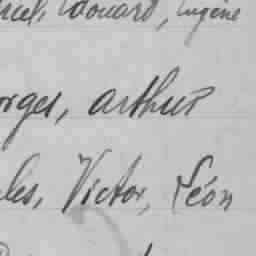 Edouard, Eugène
orges, Arthur
les, Victor, Léon